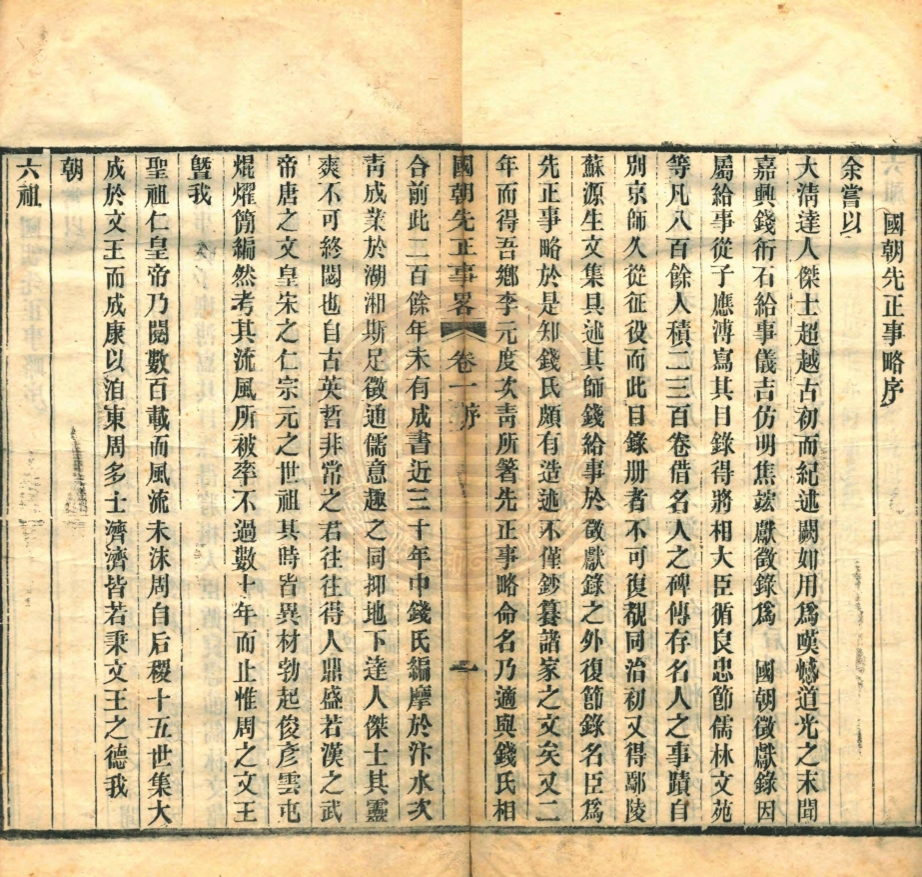 國朝先正事略序
余嘗以
大淸達人傑士超越古初而紀述闕如用爲嘆憾道光之末聞
嘉興錢衎石給事儀吉仿明焦竑獻徵錄爲　國朝徵獻錄因
屬給事從子應溥寫其目錄得將相大臣循良忠節儒林文苑
等凡八百餘人積二三百卷借名人之碑傳存名人之事蹟自
別京師久從征役而此目錄册者不可復覩同治初又得鄢陵
蘇源生文集具述其師錢給事於徵獻錄之外復節錄名臣爲
先正事略於是知錢氏頗有造述不僅鈔纂諸家之文矣又二
年而得吾鄕李元度次靑所箸先正事略命名乃適與錢氏相
國朝先正事畧　卷一　序　一
合前此二百餘年未有成書近三十年中錢氏編摩於汴水次
靑成業於湖湘斯足徵通儒意趣之同抑地下達人傑士其靈
爽不可終閟也自古英哲非常之君往往得人鼎盛若漢之武
帝唐之文皇宋之仁宗元之世祖其時皆異材勃起俊彥雲屯
焜燿簡編然考其流風所被率不過數十年而止惟周之文王
曁我
聖祖仁皇帝乃閱數百載而風流未沫周自后稷十五世集大
成於文王而成康以洎東周多士濟濟皆若秉文王之德我
朝
六祖